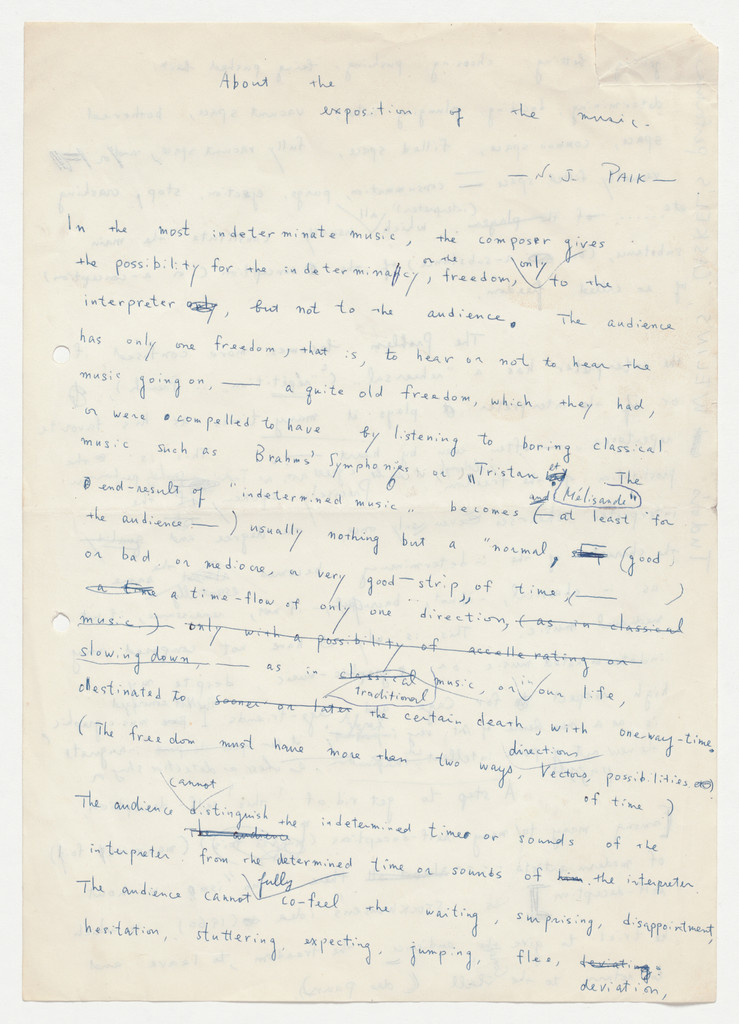 About the
exposition of the music.
— N. J. PAIK —
In the most indeterminate music, the composer gives
the possibility for the indeterminacy, or the freedom, only to the
interpreter only, but not to the audience. The audience
has only one freedom, that is, to hear or not to hear the
music going on, — a quite old freedom, which they had,
or were compelled to have by listening to boring classical
music such as Brahms' Symphonies or "Tristan" et The
end-result of "indetermined music" becomes and Mélisande" (— at least for
the audience —) usually nothing but a "normal, (good
or bad or mediocre, or very good-strip" of time, (—)
a time a time-flow of only one direction, (as in classical
music) only with a possibility of accellerating or
slowing down, — as in classical traditional music, or in our life,
destinated to sooner or later the certain death, with one-way-time.
(The freedom must have more than two ways, directions, Vectors, possibilities etc)
of time)
The audience cannot distinguish the indetermined time or sounds of the
The audience
interpreter from the determined time or sounds of him. the interpreter.
The audience cannot fully co-feel the waiting, surprising, disappointment,
hesitation, stuttering, expecting, jumping, flee, deviating:
deviation,